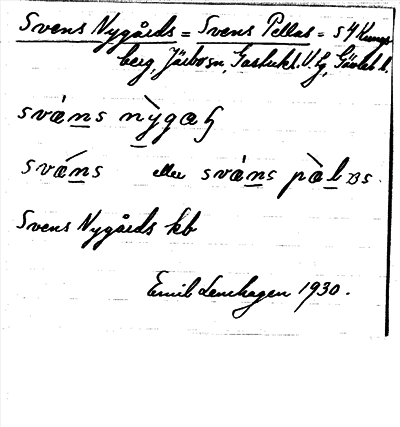 Svens Nygårds = Svens Pellas = S4 Kungs
berg, Järbo sn, Gästrikl. V. Lg, Gävleb. l.
svæns nygaɧ
svæns eller svæns pælas.
Svens Nygårds kb
Emil Lenhagen 1930.